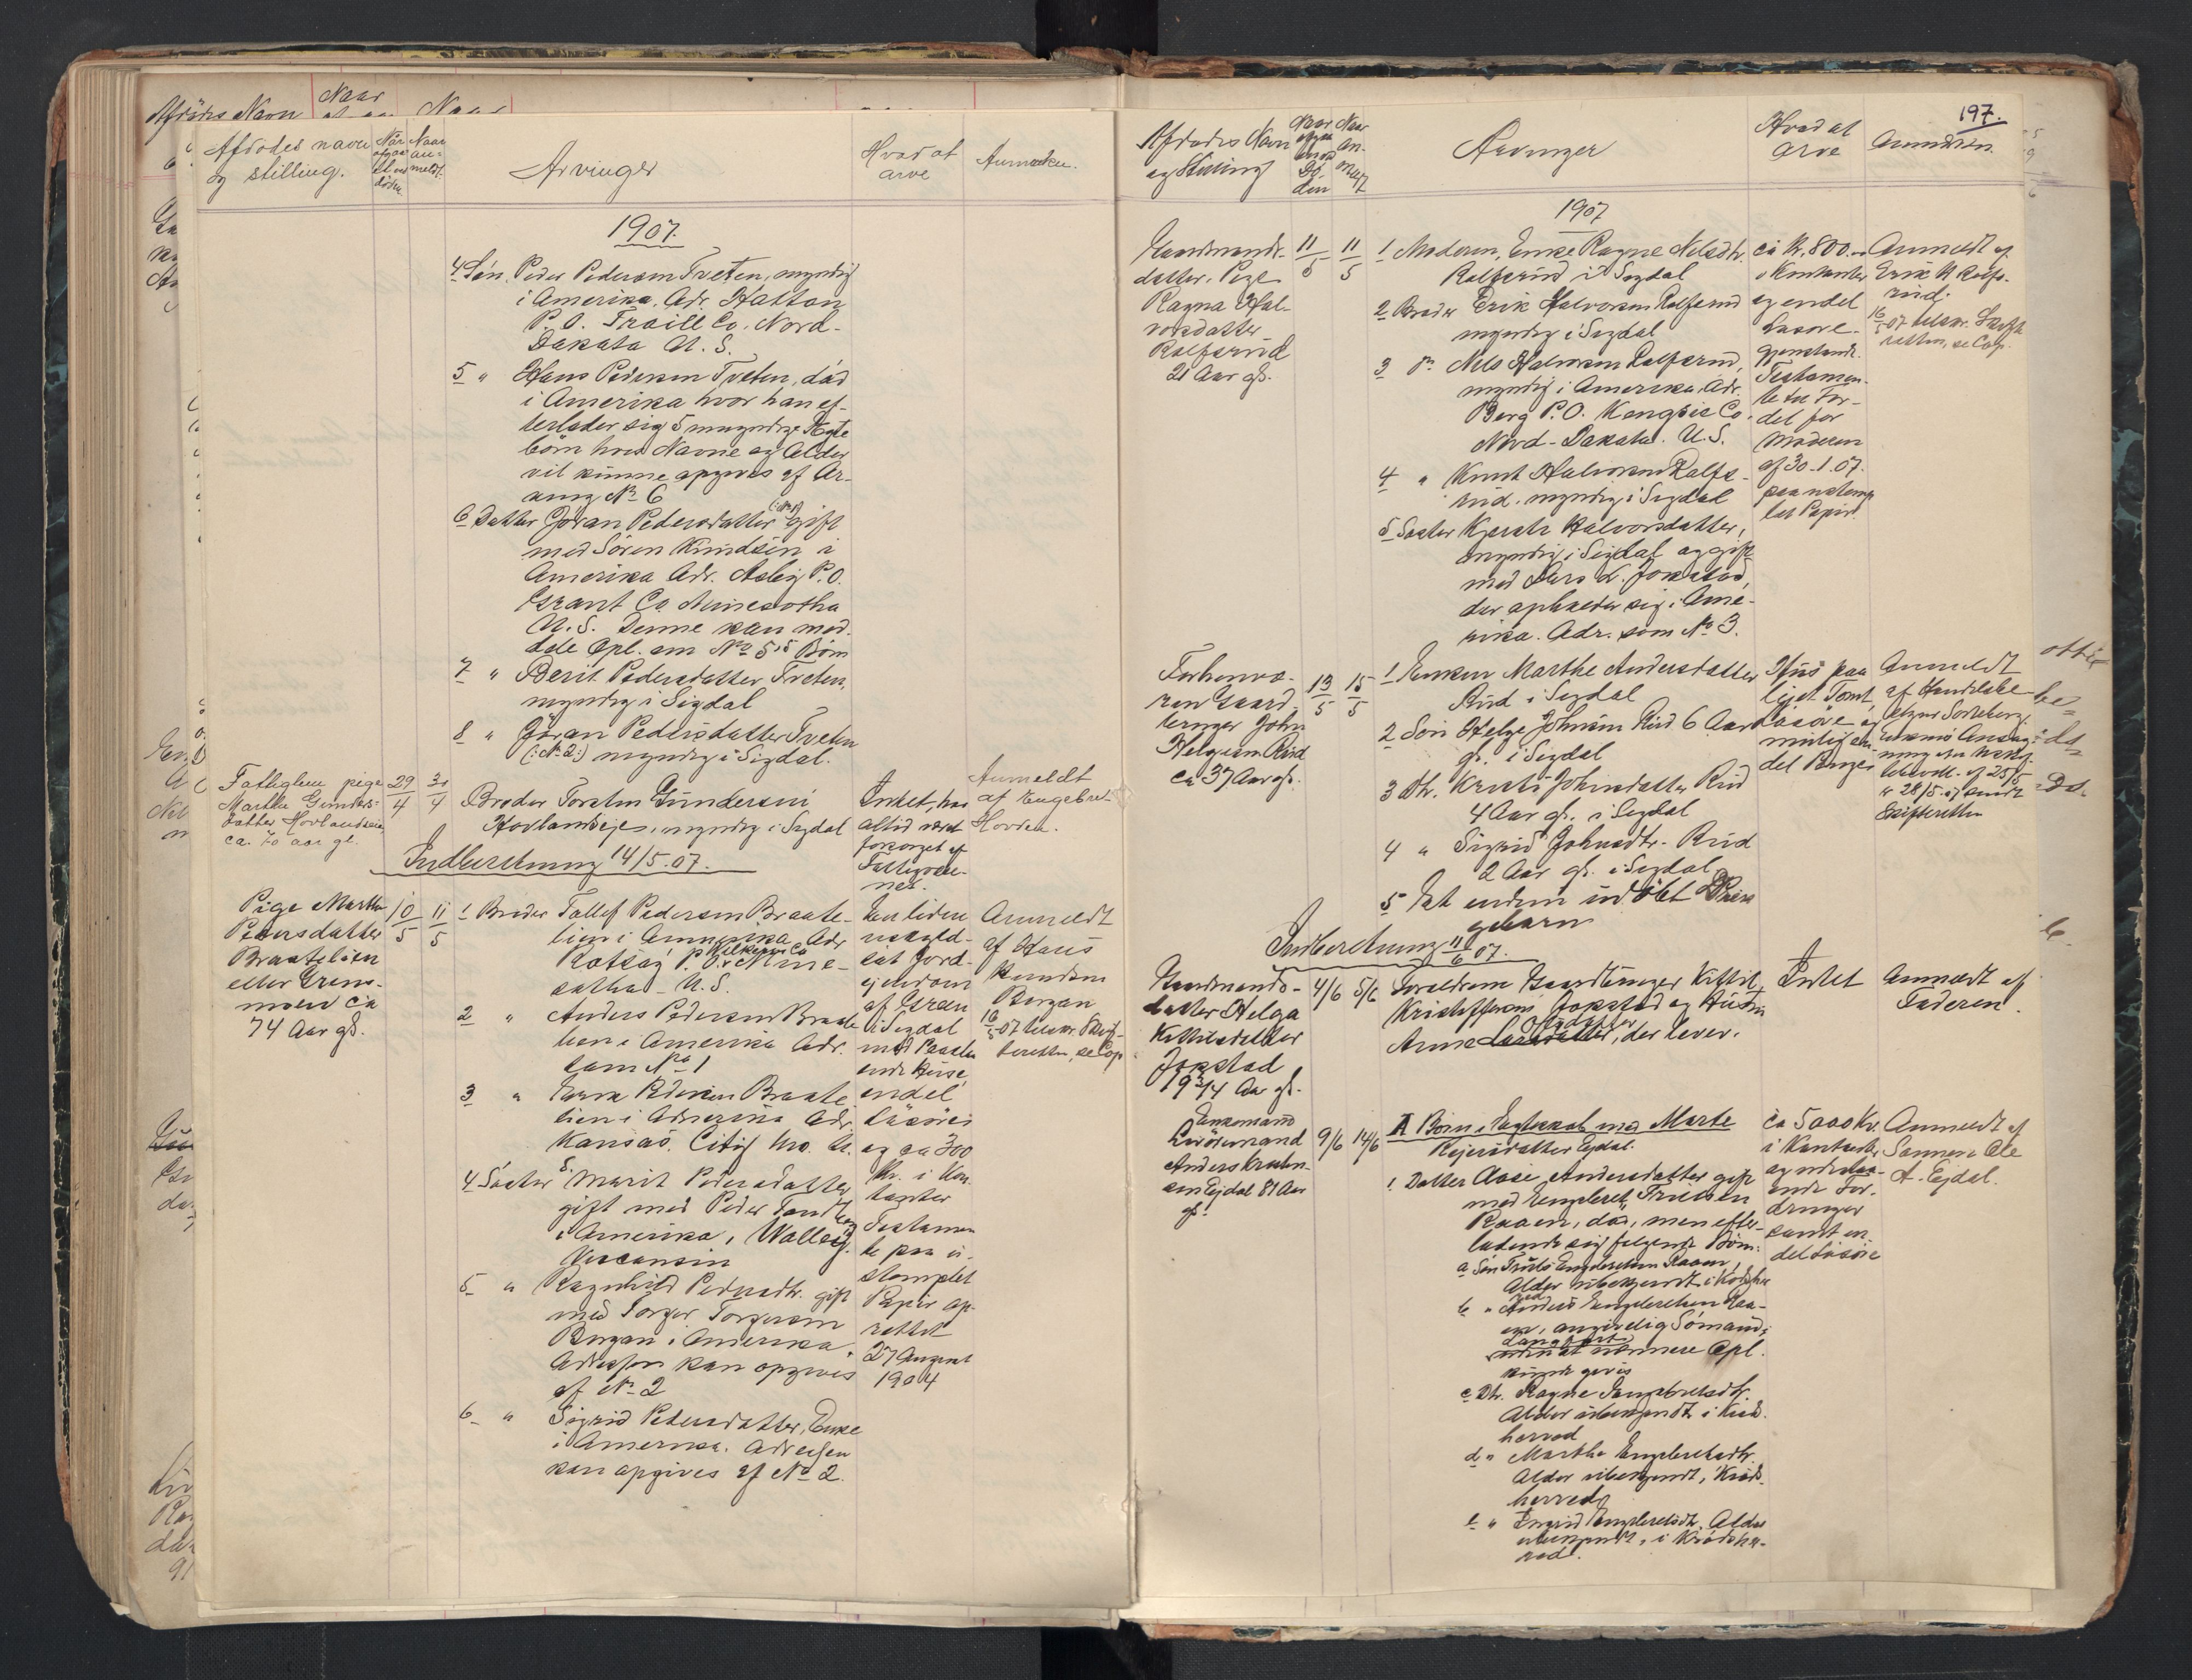 Afdødes navn
og stilling.
Når
afgaa
et ved
døden
Naar
an-
meldt.
Arvinger
Hvad at
arve
Anmærkn.
1907.
4 Søn. Peder Pedersen Tveten, myndig
i Amerika. Adr. Hatton
P.O. Traill Co. Nord-
Dakata U.S.
5 " Hans Pedersen Tveten, død
i Amerika hvor han ef-
terlader sig 5 umyndige Ægte
börn hvis Navne og Alder
vil kunne opgives af Ar-
ving No 6
6 Datter Göran Pedersdatter (: No 1) gift
med Sören Knudsen i
Amerika Adr. Asbig P.O.
Grant Co. Minesotha
U.S. Denne kan med-
dele Opl. om No 5's Börn
7 " Berit Pedersdatter Tveten,
myndig i Sigdal
8 " Göran Pedersdatter Tveten
(: No 2:) myndig i Sigdal.
Fattiglem pige
Marthe Gunders-
datter Hovlandseie
ca. 70 aar gl.
29/4
30/4
Broder Torsten Gundersen
Hovlandseje, myndig i Sigdal
Intet, har
altid været
forsørget af
Fattigvæse-
net.
Anmeldt
af Engebret
Hovde.
Indberetning 14/5.07.
Pige Marthe
Pedersdatter
Braatelien
eller Grens-
moen ca
74 Aar gl.
10/5
11/5
1 Broder Tollef Pedersen Braate-
lien i Amerika Adr
Rotsay P.O. Wilken Co Mine-
satha - U.S.
2 " Anders Pedersen Braate
lien i Amerika Adr.
som No 1
3 " Pedersen Braate
lien i Amerika Adr.
Kansas City Mo. U.
S.
4 Søster Marit Pedersdatter
gift med Peder Tandberg
i Amerika, Walley.
Viscansin
5 " Ragnhild Pedersdtr. gift
med Torger Torgersen
Bergan i Amerika.
Adressen kan opgives
af No 2
6 " Sigrid Pedersdatter, Enke
i Amerika. Adressen
kan opgives af No 2.
En liden
uskyld-
sat Jord-
ejendom
af Gren
i Sigdal
med Paastaa
ende Huse,
endel
Lösöre
og ca 300
Kr. i Kon
tanter
Testamen
te paa u-
stemplet
Papir op-
rettet
27 August
1904
Anmeldt
af Hans
Knudsen
Bergan
16/5 07 tilskr. Skif-
teretten, se Cop
197.
Afdødes Navn
og Stilling
Naar
afgaa
en ved
Dø-
den
Naar
an-
meldt
Arvinger
Hvad at
arve
Anmærkn.
1907
Gaardmands-
datter, Pige
Ragna Hal-
vorsdatter
Ralfsrud
21 Aar gl.
11/5
11/5
1 Moderen, Enke Ragne Nilsdtr.
Ralfsrud i Sigdal
2 Broder Erik Halvorsen Ralfsrud
myndig i Sigdal
3 Do Nils Halvorsen Ralfsrud,
myndig i Amerika. Adr.
Berg P.O. Kengsie Co.
Nord-Dakata. U.S.
4 " Knut Halvorsen Ralfs-
rud, myndig i Sigdal
5 Søster Kjersti Halvorsdatter,
myndig i Sigdal og gift
med Lars L. Jokstad,
der opholder sig i Ame-
rika. Adr. som No 3.
ca Kr. 800.
i Kontanter
og endel
Løsøre-
gjenstande.
Testamen-
te til For-
del for
Moderen
af 30-1.07.
paa ustemp
let Papir.
Anmeldt af
Erik H. Ralfs-
rud.
16/5 07 tilskr. Skifte
retten, se Cop.
Forhenvæ-
ren Gaard-
bruger John
Helgesen Rud
ca 37 Aar gl.
13/5
15/5
1 Enken Marthe Andersdatter
Rud i Sigdal
2 Søn Helge Johnsen Rud 6 Aar
gl. i Sigdal
3 Dtr. Kristi Johnsdatter Rud
4 Aar gl. i Sigdal
4 " Sigrid Johnsdtr. Rud
2 Aar gl. i Sigdal
5 Et endnu udöbt Piges
gebarn
Hus paa
lejet Tomt,
Løsøre og
mulig en
del Penge
Anmeldt
af Handelsbe-
tyrer Soreberg.
28/5
Skifteretten
Indberetning 11/6 07.
Gaardmands-
datter Helga
Kittilsdatter
Jokstad
19 3/4 Aar gl.
4/6
5/6
Forældrene Gaardbruger Kittil
Kristoffersen Jokstad og Hustru
Anne Olsdatter, der lever.
Intet
Anmeldt af
Faderen.
Enkemand
Livöremand
Anders Knuds-
sen Ejdal 81 Aar
gl.
9/6
14/6
A Börn i Ægteskab med Marte
Rejersdatter Ejdal.
1 Datter Aase Andersdatter gift
med Engebret Trulsen
Raaen, död, men efter-
ladende sig følgende Børn:
a Søn Truls Engebretsen Raaen,
Alder ubekjendt i Kodsher
red
b " Anders Engebretsen Raa-
en, angivelig Sömand i
Langfart
uden at nærmere Opl.
kunde gives
c Dtr. Ragne Engebretsdtr.
Alder ubekjendt i Kröds-
herred
d " Marthe Engebretsdtr.
Alder ubekjendt, i Kröds-
herred
e " Ingrid Engebretsdtr. Alder
ubekjendt, i Krödsher-
red.
ca 5000 Kr.
i Kontanter
og udestaa-
ende For-
dringer
samt en
del Løsøre
Anmeldt af
Sönnen Ole
A. Ejdal.